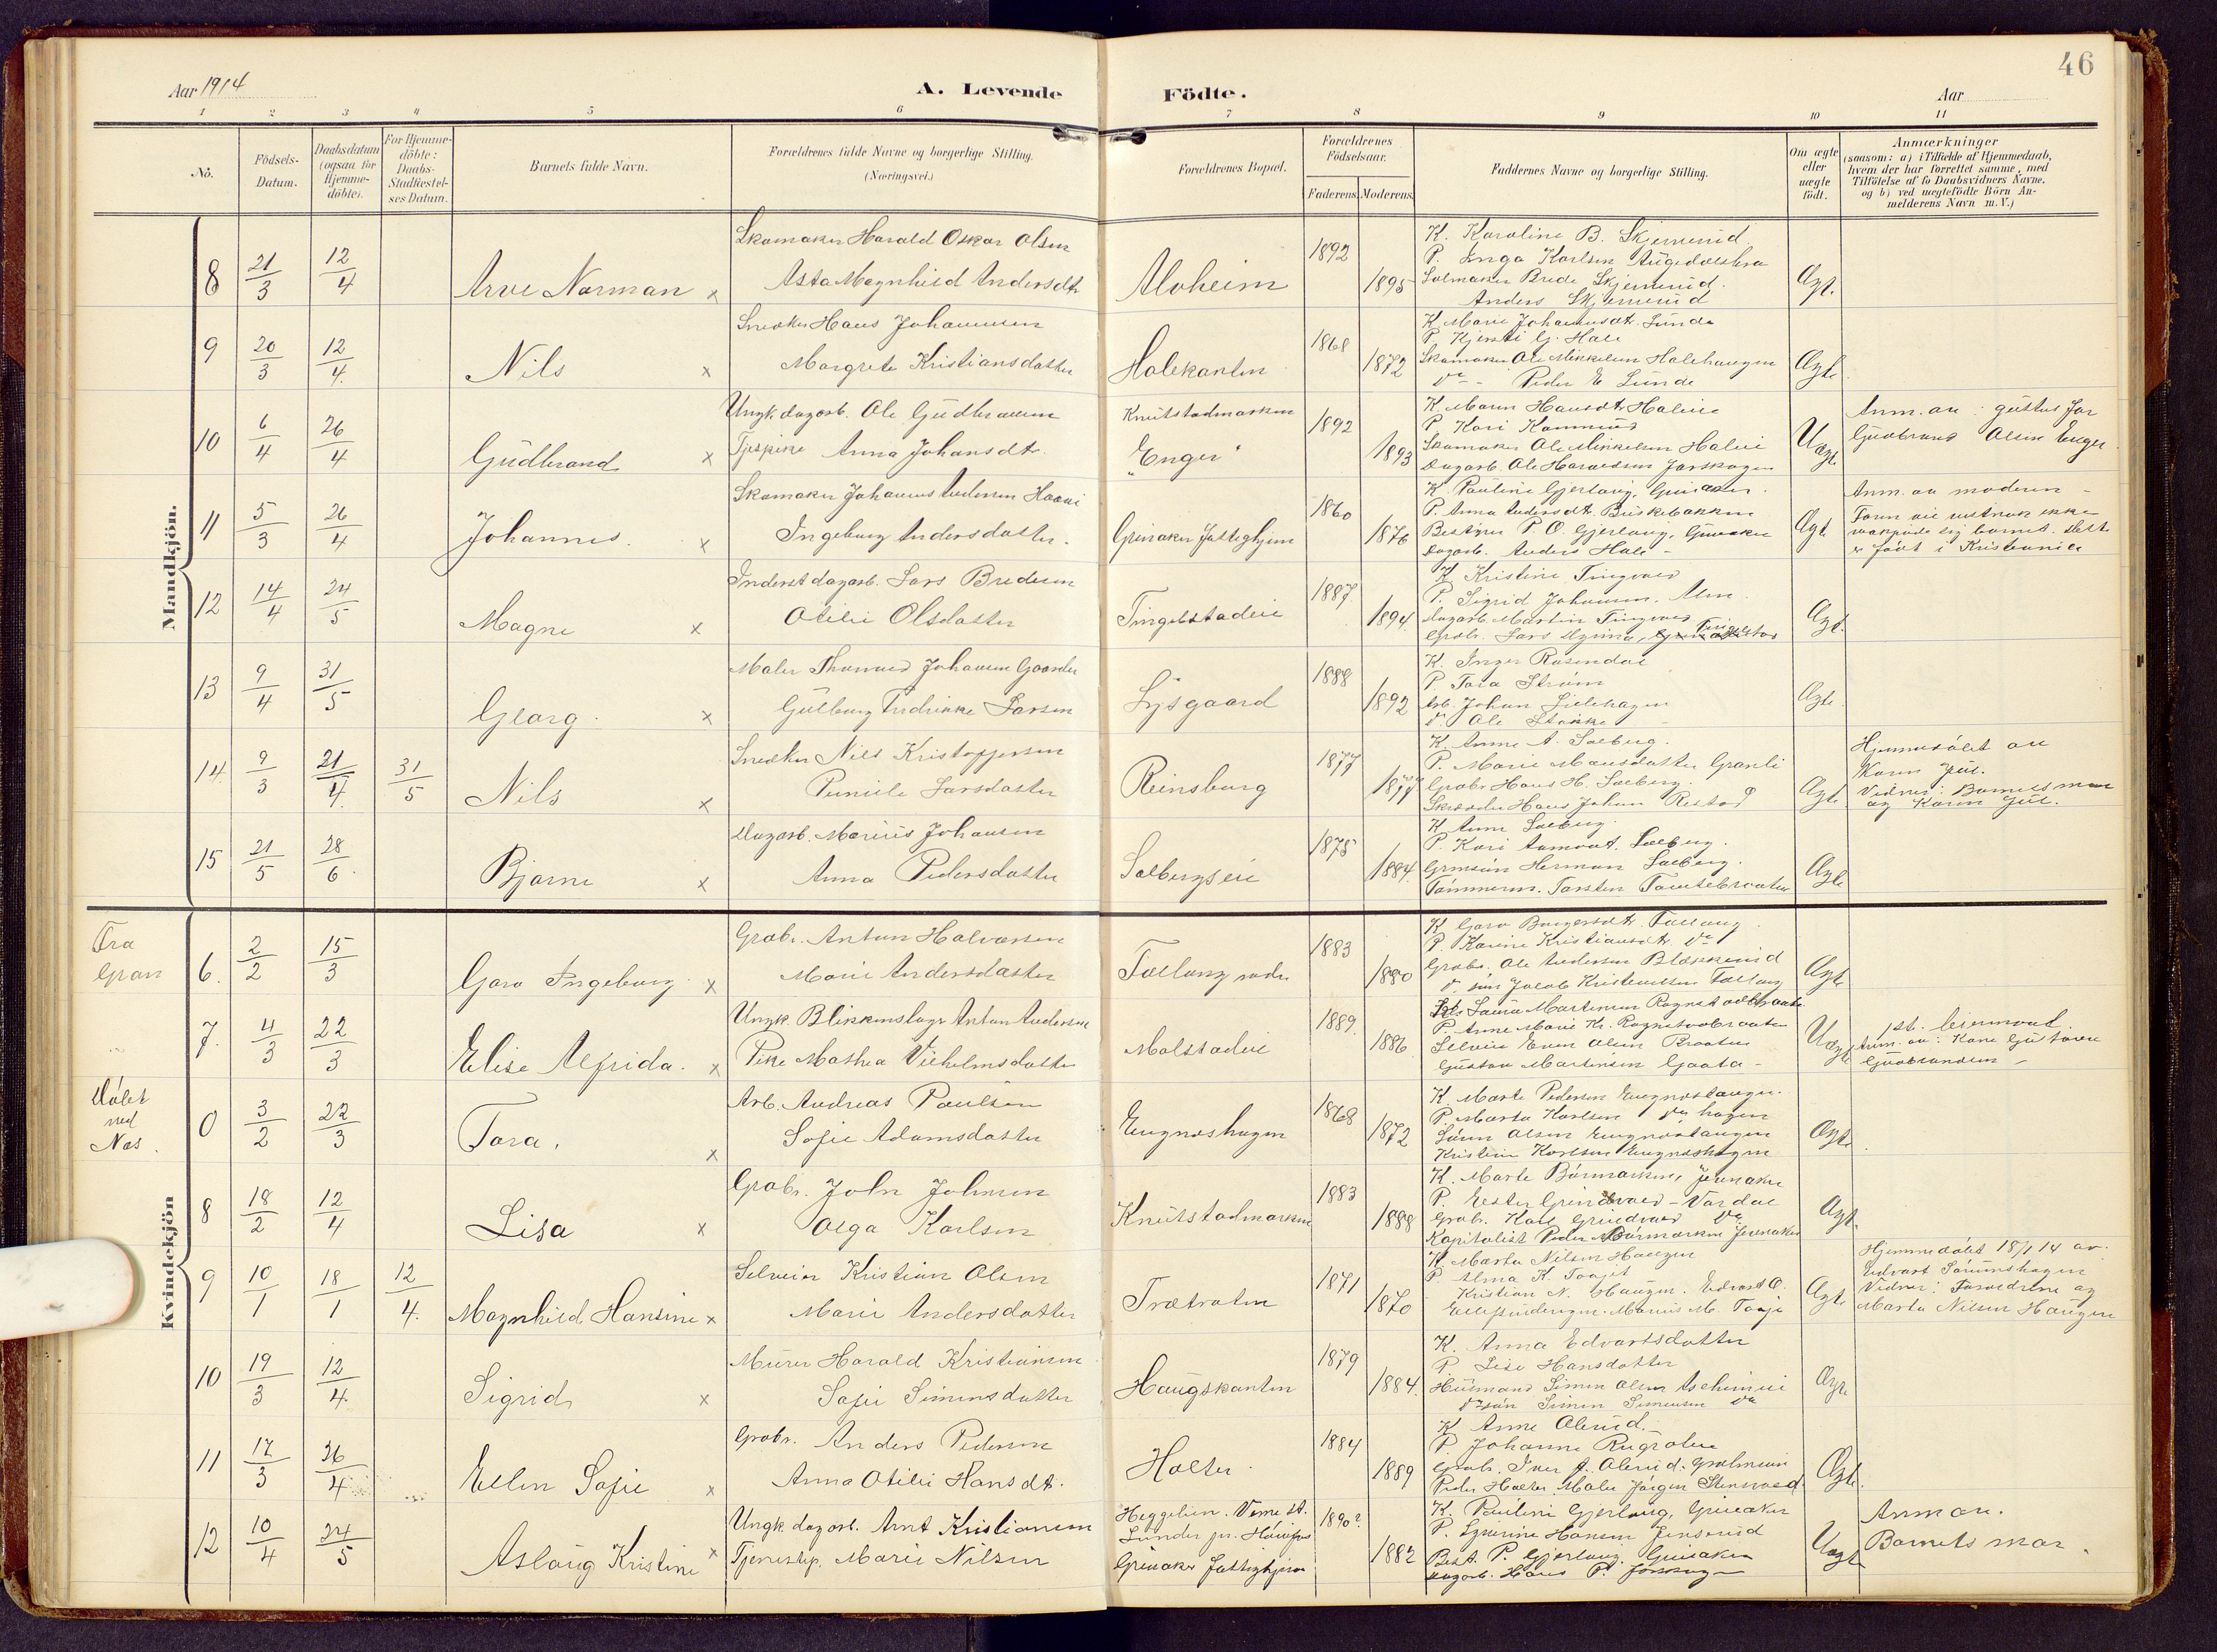 46
Aar 1914
A. Levende
Födte.
Aar
1 2 3 4 5 6 7 8 9 10 11
No.
Födsels-
Datum.
Daabsdatum
(ogsaa for
Hjemme-
döbte).
For Hjemme-
döbte:
Daabs-
Stadfæstel-
ses Datum.
Barnets fulde Navn.
Forældrenes fulde Navne og borgerlige Stilling.
(Næringsvei.)
Forældrenes Bopæl.
Forældrenes
Födselsaar.
Faderens. Moderens.
Faddernes Navne og borgerlige Stilling.
Om ægte
eller
uægte
födt.
Anmærkninger
(saasom: a) i Tilfælde af Hjemmedaab,
hvem der har forrettet samme, med
Tilföielse af to Daabsvidners Navne,
og b) ved uægtefödte Börn An-
melderens Navn m. V.)
Mandkjön.
8 21/3 12/4 Arve Norman x
Skomaker Harald Oskar Olsen
Asta Magnhild Andersdtr
Alvheim 1892 1895
K. Karoline B. Skjerverud
P. Inga Karlsen
Salmaker Brede Skjerverud.
Anders Skjerverud
Ægt.
9 20/3 12/4. Nils x
Snedker Hans Johannesen
Margrete Kristiansdatter
Halekanten 1868 1872
K. Marie Johannesdtr. Lunde
P. Kjersti G. Hale
Skomaker Ole Mikkelsen Halehaugen
do - Peder E Lunde
Ægte
10 6/4 26/4 Gudbrand x
Ungk. dagarb. Ole Gudbransen
Tjspike Anna Johansdtr.
Knutstadmarken
"Enger" 1892 1893
K. Maren Hansdtr Haleie
P. Kari Kammerud
Skomaker Ole Mikkelsen Haleie
Dagarb. Ole Haraldsen
Uægt.
Anm. av: guttens far
Gudbrand Olsen Enger
11 5/3 26/4 Johannes. x
Skomaker Johannes Andersen
Ingeborg Andersdatter.
Grinaker Fattighjem 1860 1876
K. Pauline Gjerlaug, Grinaker.
P. Anna Andersdtr Briskebakken
Bestyrer P. O. Gjerlaug, Grinaker
Dagarb. Anders Hale -
Ægt
Anm. av moderen -
er födt i Kristiania
12 14/4 24/5 Magne x
Inderst dagarb. Lars Bredesen
Otilie Olsdatter
Tingelstadeie 1887. 1894.
K. Kristine Tingvold
P. Sigrid Johansen. Alm.
Dagarb. Martin Tingvold
Gaabr. Lars Tingelstad
Ægt.
13 9/4 31/5 Georg. x
Maler Thorvald Johansen Gaarder
Gulborg Fredrikke Larsen
Lysgaard 1888 1892
K. Inger Rosendal
P. Tora Ström
Arb. Johan Liclehagen
do Ole Stokke -
Ægte.
14. 9/3 21/4. 31/5 Nils x
Snedker Nils Kristoffersen
Pernille Larsdatter
Reinsborg 1877 1877
K. Anne A. Solberg.
P. Marie Mausdatter Granli
Gaabr. Hans H. Solberg.
Skrædder Hans Johan Restad
Ægte
Hjemmedöbt av
Karen Jul.
Vidner: Barnets mor
og Karen Jul.
15 21/5 28/6. Bjarne x
Dagarb. Marius Johansen
Anna Pedersdatter
Solbergseie 1875 1884.
K. Anne Solberg.
P. Kari Aamodt. Solberg.
Grmsön Herman Solberg.
Tömmerm. Torsten Tomtebraaten
Ægte
Kvindekjön
Fra
Gran
6. 2/2 15/3 Gara Ingeborg x
Graabr. Anton Halvorsen
Marie Andersdatter
Follang nedre 1883 1880
K. Gara Borgersdtr. Follang
P. Karine Kristiansdtr. do
Graabr. Ole Andersen Blakkerud
do. sön Jacob Kristensen Follang
Ægte
7. 4/3 22/3 Elise Alfrida. x
Ungk. Blikkenslager Anton Andersen
Pike Mathea Vilhelmsdatter
Molstadeie 1889. 1886
K. Laura Martinsen Rognstadbraaten
P. Anne Marie Kr. Rognstadbraaten
Selveier Even Olsen Braaten
Gustav Martinsen Gaata -
Uægte
1ste. leiermaal.
Anm. av: Kone
Gudbrandsen -
Döbt
ved
Næs.
0 3/2 22/3 Tora. x
Arb. Andreas Paulsen
Sofie Adamsdatter
Engnæshagen 1868 1872
K. Marte Pedersen Engnæstangen.
P. Marta Karlsen do hagen
Sören Olsen Engnæstangen
Kristine Karlsen Engnæshagen
Ægte.
8 18/2 12/4 Lisa x
Graabr. John Johnsen
Olga Karlsen
Knutstadmarken 1883 1888
K. Marte Börmarken, Jevnaker
P. Ester Grindvold - Vardal
Graabr. Karl Grindvold do
Kapitalist Peder Börmarken Jevnaker
Ægt.
9 10/1 18/1 12/4. Magnhild Hansine x
Selveier Kristian Olsen
Marie Andersdatter
Trætraten 1871 1870
K. Marta Nilsen Haugen
P. Alma K. Toajet
Kristian N. Haugen. Edvard O.
Marius M. Toaje
Ægte
Hjemmedöbt 18/1 14 av.
Edvart Sörumshagen
Vidner: Forældrene og
Marta Nilsen Haugen
10 19/3 12/4. Sigrid x
Murer Harald Kristiansen
Sofie Simensdatter
Haugskanten 1879 1884.
K. Anna Edvartsdatter
P. Lise Hansdatter
Husmand Simen Olsen Aschimeie
do sön Simen Simensen do
Ægte.
11 17/3 26/4 Ellen Sofie x
Graabr. Anders Pedersen
Anna Otilie Hansdtr.
Holter. 1884 1889
K. Anne Olerud.
P. Johanne Rugsalen
Graabr. Iver A. Olerud.
Peder Holter. Maler Jörgen Stensvold
Ægte.
12 10/4 24/5 Aslaug Kristine x
Ungk dagarb. Arnt Kristiansen
Tjenestep. Marie Nilsen
Heggelien. Veme st.
Lunder pr. Hönefos
Grinaker Fattighjem 1890? 1882
K. Pauline Gjerlaug, Grinaker
P. Hansen Jensrud
Best. P. Gjerlaug. Grinaker
Dagarb. Hans P.
Uægte
Anm av.
Barnets mor.